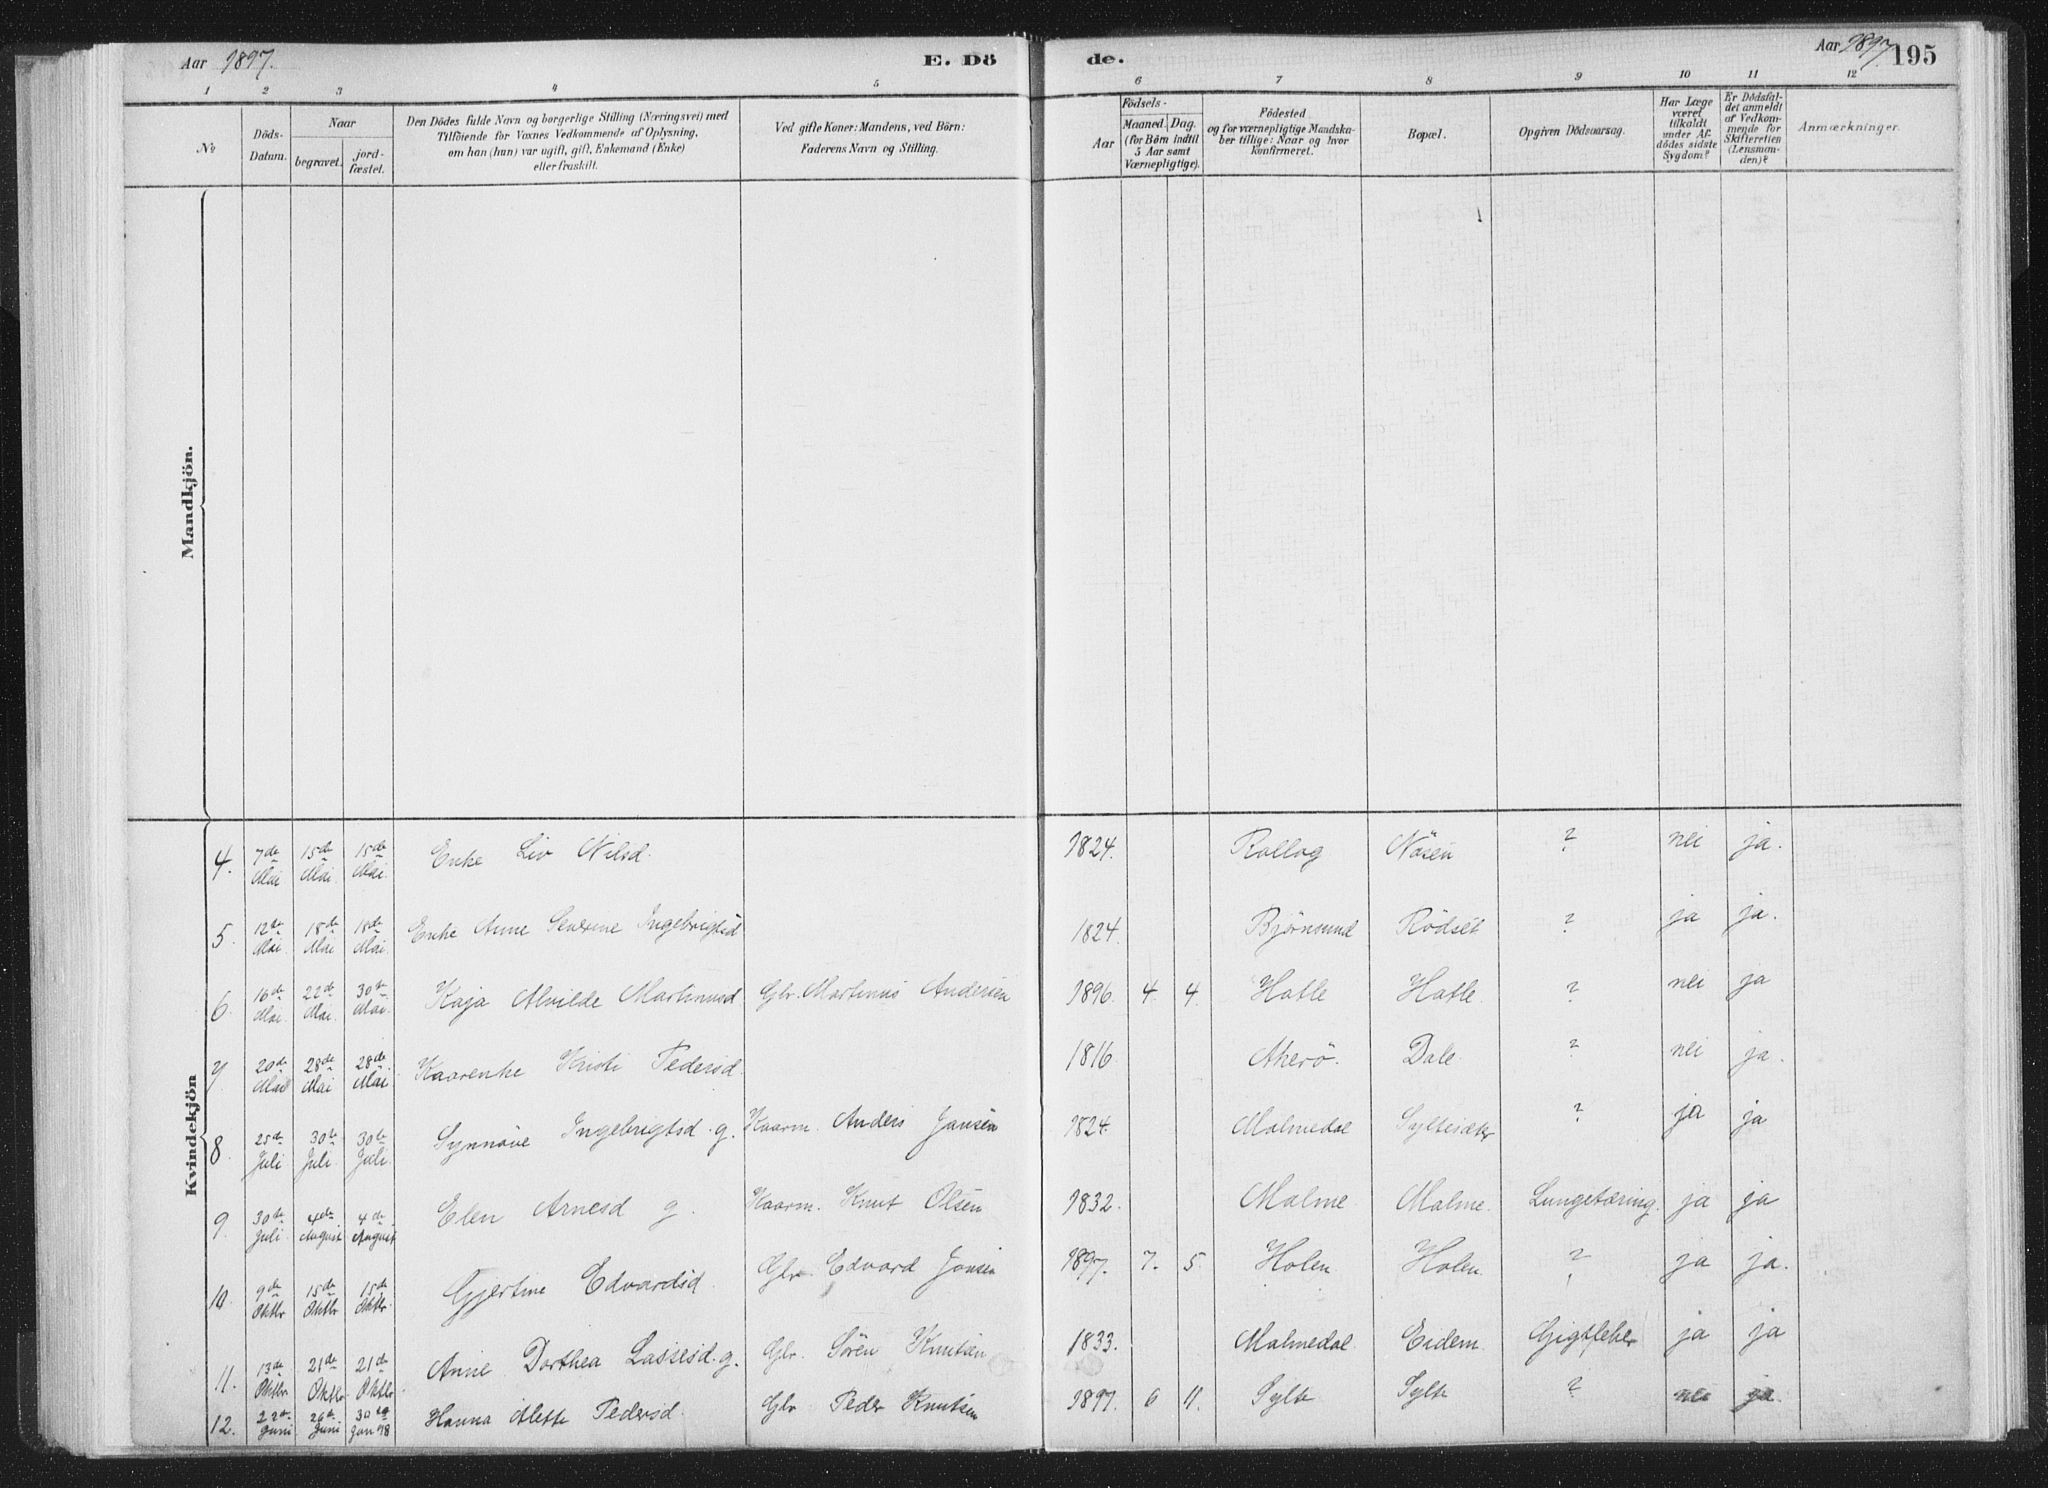 Aar 1897.
E. Dö
de.
Aar 1897.
195
1 2 3 4 5 6 7 8 9 10 11 12
No
Döds-Datum.
Naar
begravet.
jord-fæstet.
Den Dödes fulde Navn og borgerlige Stilling (Næringsvei) med
Tilföiende for Voxnes Vedkommende af Oplysning,
om han (hun) var ugift, gift, Enkemand (Enke)
eller fraskilt.
Ved gifte Koner: Mandens, ved Börn:
Faderens Navn og Stilling.
Födsels-
Aar
Maaned. Dag.
(for Börn indtil
5 Aar samt
Værnepligtige).
Födested
og for værnepligtige Mandska-
ber tillige: Naar og hvor
konfirmeret.
Bopæl.
Opgiven Dödsaarsag.
Har Læge
været
tilkaldt
under Af-
dödes sidste
Sygdom?
Er Dödsfal-
det anmeldt
af Vedkom-
mende for
Skifteretten
(Lensman-
den)?
Anmærkninger.
Mandkjön.
Kvindekjön
4. 7de Mai 15de Mai 15de Mai Enke Liv Nilsd. 1824. Rollag Nösen ? nei ja.
5. 12te Mai 18de Mai 18de Mai Enke Anne Severine Ingebrigtsd 1824. Björnsund Rödset ? ja ja.
6. 16de Mai 22de Mai 30te Mai Kaja Alvilde Martinusd. Gbr. Martinus Andersen 1896. 4. 4. Hatle Hatle. ? nei ja
7. 20de Mai 28de Mai 28de Mai Kaarenke Kristi Pedersd. 1816. Akerö. Dale. ? nei ja.
8. 25de Juli 30te Juli 30te Juli Synnöve Ingebrigtsd. g. Kaarm. Anders Jansen 1824. Malmedal Syltesæter ? ja ja
9. 30te Juli 4de August 4de August Elen Arnesd g. Kaarm. Knut Olsen 1832. Malme. Malme. Lungetæring. ja ja
10. 9de Oktbr 15de Oktbr 15de Oktbr. Gjertine Edvardsd. Gbr. Edvard Jonsen 1897. 7. 5. Holen Holen ? ja ja.
11. 13de Oktbr 21de Oktbr. 21de Oktbr. Anne Dorthea Lassesd. g. Gbr. Sören Knutsen 1833. Malmedal Eidem. Gigtfeber ja ja
12. 22de Juni 26de Juni 30te Jan 98 Hanna Alette Pedersd. Gbr Peder Knutsen 1897. 6 11. Sylte Sylte ? nei ja.